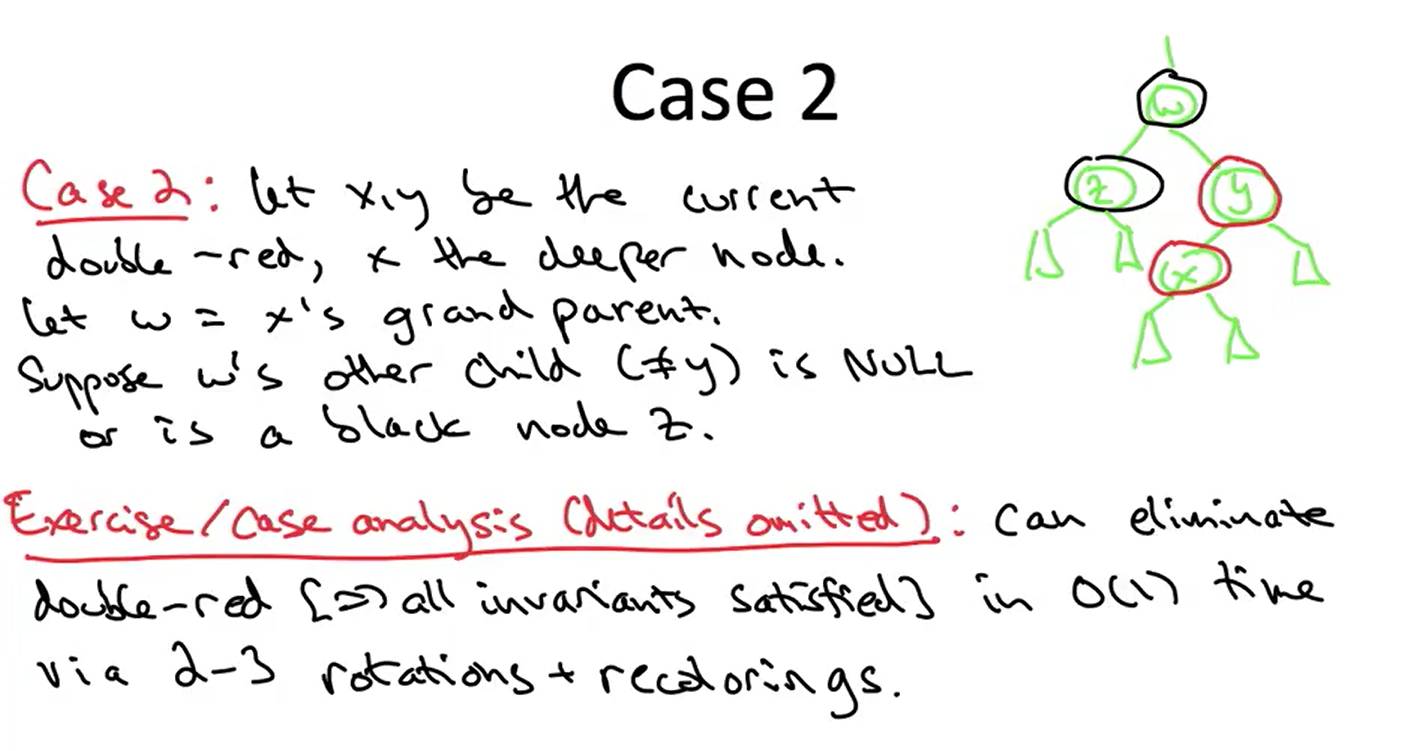 Case 2
Case 2: let x,y be the current
double-red, x the deeper node.
let w = x's grandparent.
Suppose w's other child (≠y) is NULL
or is a black node z.
Exercise/Case analysis (details omitted): can eliminate
double-red [=> all invariants satisfied] in O(1) time
via 2-3 rotations + recolorings.
w
z y
x